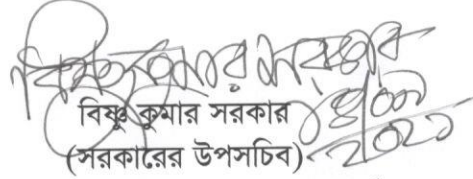 বিষ্ণু কুমার সরকার
বিষ্ণু কুমার সরকার
(সরকারের উপসচিব)